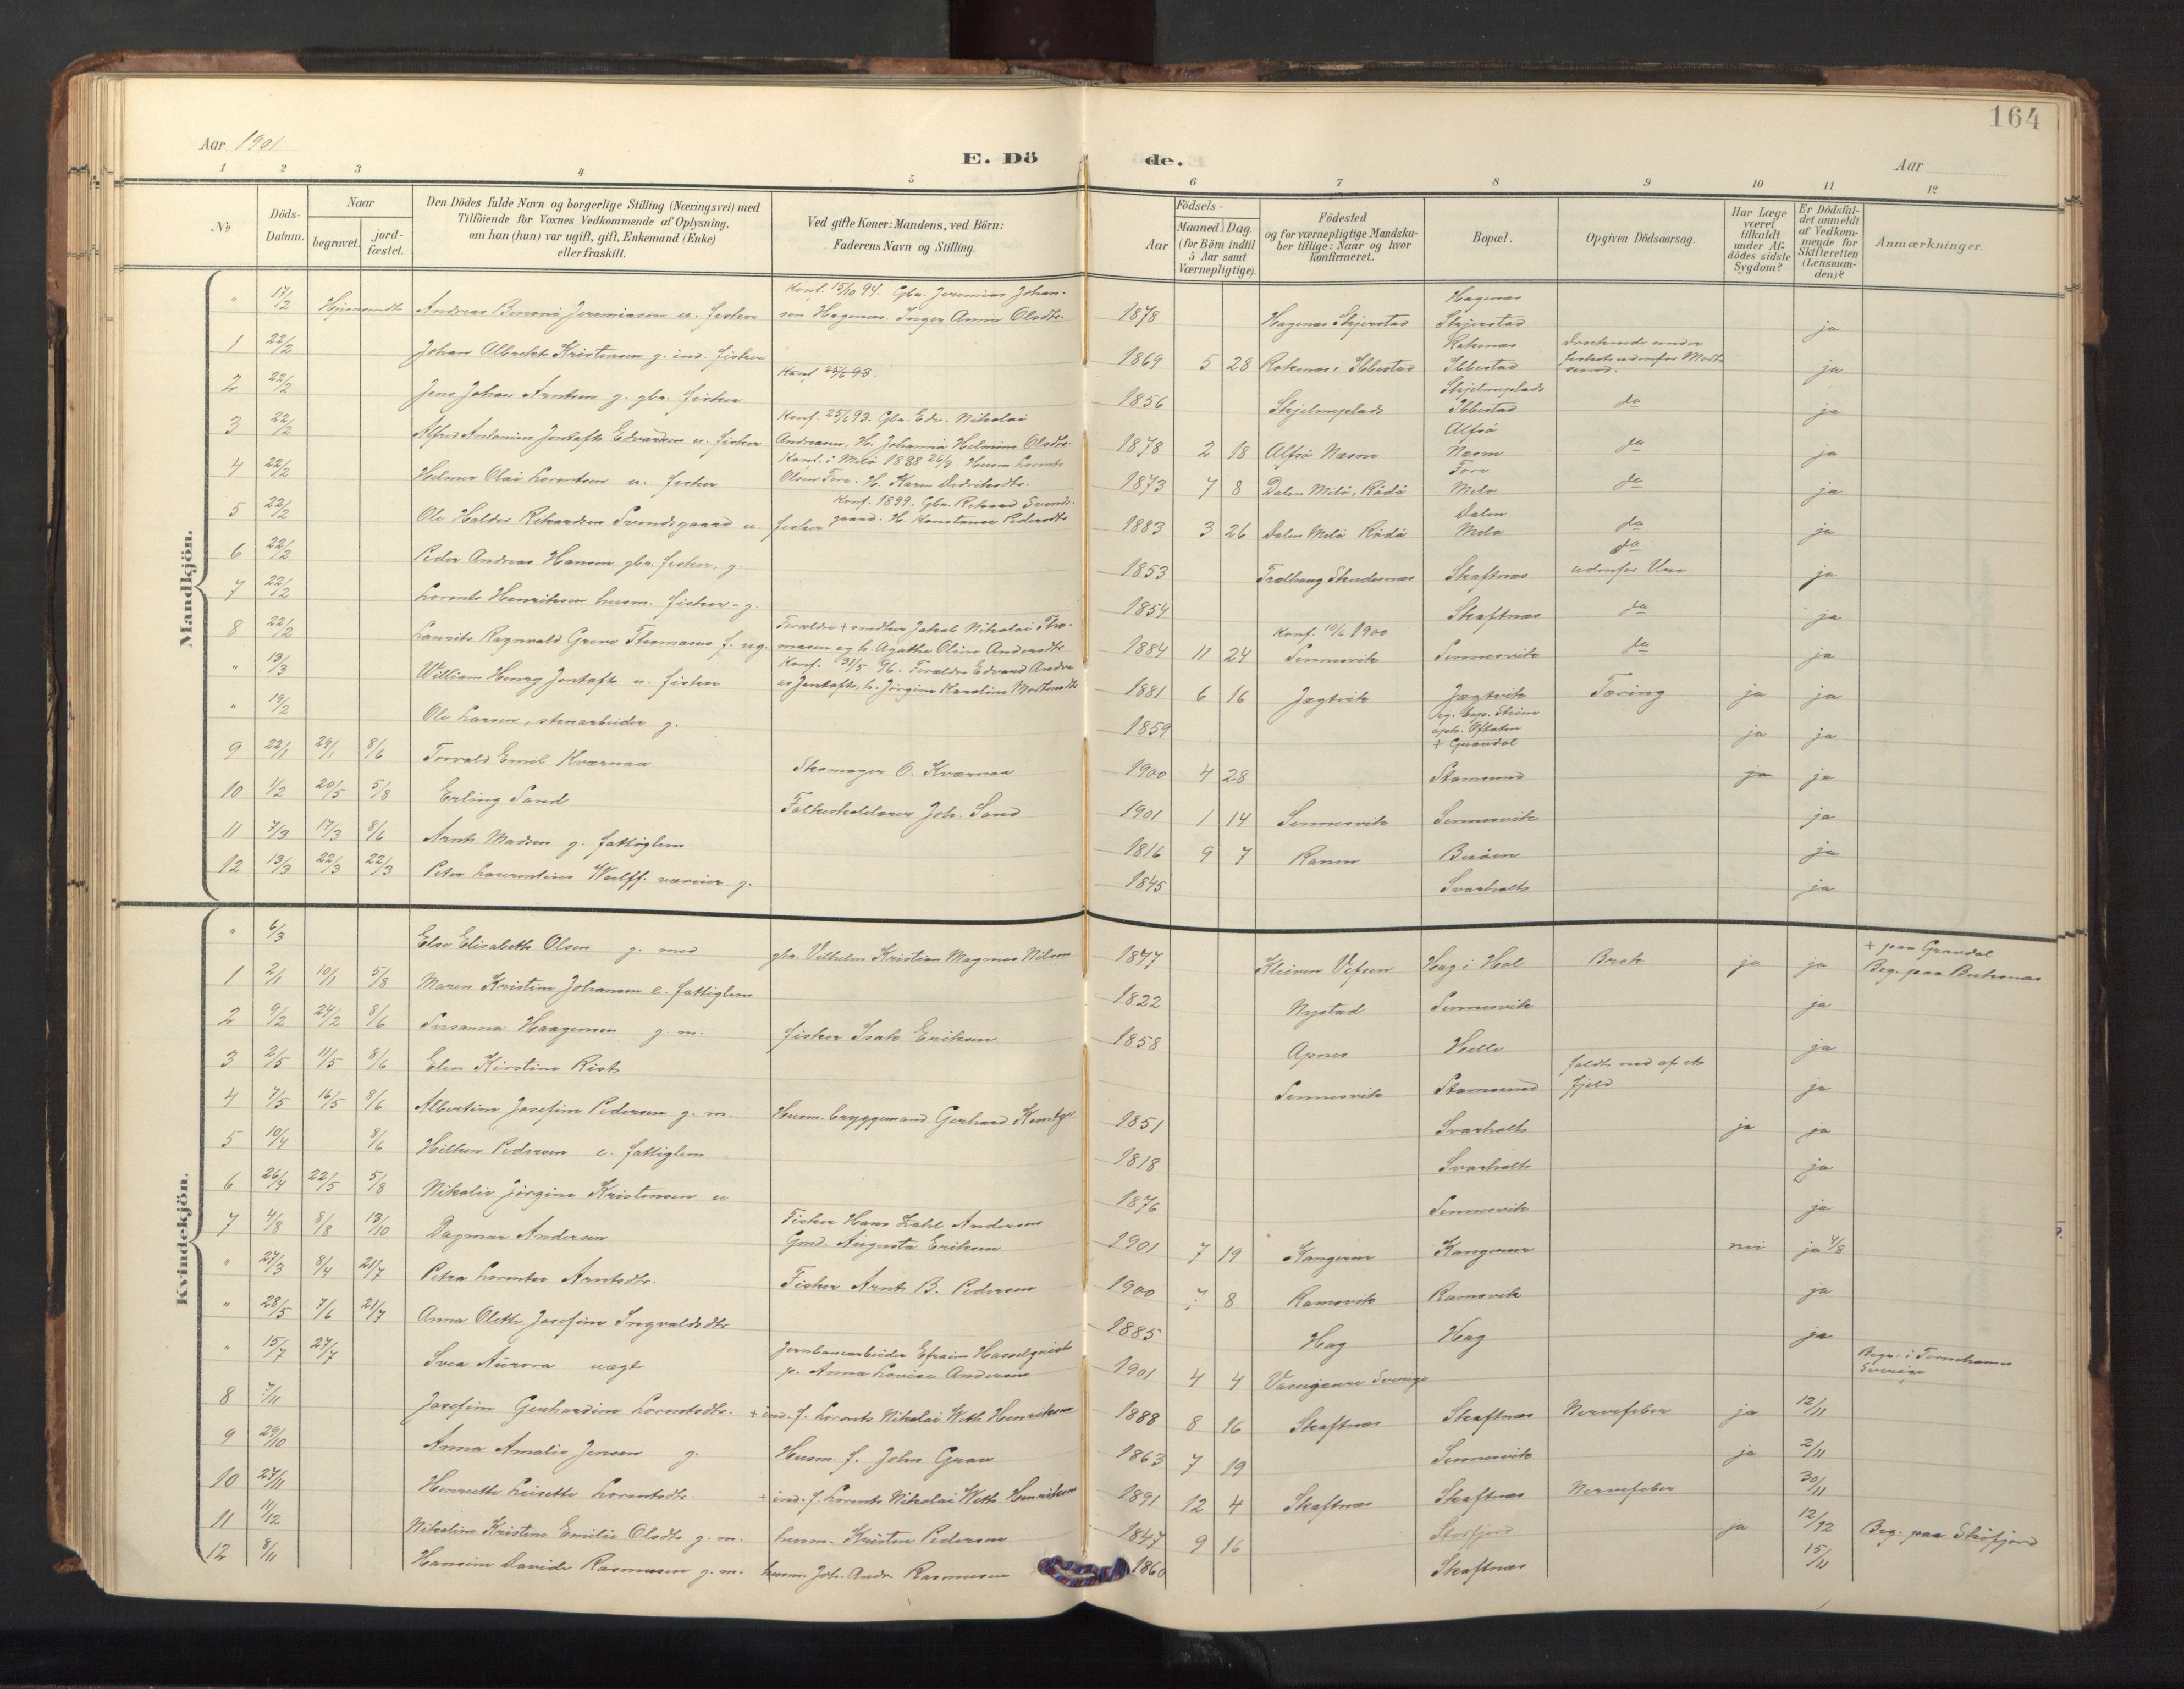 164
Aar 1901
E. Dö de.
Aar
1 2 3 4 5 6 7 8 9 10 11 12
No
Döds-Datum.
Naar
begravet.
jord-fæstet.
Den Dödes fulde Navn og borgerlige Stilling (Næringsvei) med
Tilföiende for Voxnes Vedkommende af Oplysning,
om han (hun) var ugift, gift, Enkemand (Enke)
eller fraskilt.
Ved gifte Koner: Mandens, ved Börn:
Faderens Navn og Stilling.
Födsels-
Aar
Maaned. Dag.
(for Börn indtil
5 Aar samt
Værnepligtige).
Födested
og for værnepligtige Mandska-
ber tillige: Naar og hvor
konfirmeret.
Bopæl.
Opgiven Dödsaarsag.
Har Læge
været
tilkaldt
under Af-
dödes sidste
Sygdom?
Er Dödsfal-
det anmeldt
af Vedkom-
mende for
Skifteretten
(Lensman-
den)?
Anmærkninger.
Mandkjön.
" 17/2 Andreas Benoni Jeremiasen u. fisker Konf. 15/10 94. Gbr. Jeremias Johan-
sen Hagenæs. Inger Anna Olsdtr. 1878 Hagenæs Skjerstad Hagenæs
Skjerstad ja
1 22/2 Johan Albrekt Kristensen g. ind. fisker 1869 5 28 Rotenæs i Ibbestad Rotenæs
Ibbestad Druknede under
fiskeri udenfor Mort-
sund. ja
2 22/2 Jens Johan Arntsen g. gbr. fisker Konf. 25/6 93. 1856 Skjelmeplads Skjelmeplads
Ibbestad do ja
3 22/2 Alfred Antonius Jentoft Edvardsen u. fisker Konf. 25/6 93. Gbr. Edv. Nikolai
Andreasen. H. Johanna Helmine Olsdtr. 1878 2 18 Alfsö Næsne Alfsö
Næsne do ja
4 22/2 Helmer Olai Lorentsen u. fisker Konf. i Melö 1888 26/3. Husm. Lorents
Olsen Fore. H. Karen Dedriksdtr. 1873 7 8 Dalen Melö, Rödö Fore
Melö do ja
5 22/2 Ole Haldor Rikardsen Svendsgaard u. fisker Konf. 1899. Gbr. Rikard Svends-
gaard. H. Konstance Pedersdtr 1883 3 26 Dalen Melö Rödö Dalen
Melö do ja
6 22/2 Peder Andreas Hansen gbr. fisker, g. 1853 Skaftnæs do
udenfor Ure ja
7 22/2 Lorents Henriksen husm. fisker - g. 1854 Skaftnæs do ja
8 22/2 Laurits Ragnvald Greve Thomasen f. ug. Forældre + snedker Jakob Nikolai Tho-
masen og h. Agathe Oline Andersdtr 1884 11 24 Konf. 10/6 1900
Sennesvik Sennesvik do ja
" 13/3 William Henry Jentoft u. fisker Konf. 31/5 96. Forældre Edvard Andre-
as Jentoft, h. Jörgine Karoline Mortensdtr 1881 6 16 Jægtvik Jægtvik Tæring ja ja
" 19/2 Ole Larsen, stenarbeider g. 1859
+ Gravdal ja ja
9 22/1 29/1 8/6 Torvald Emil Kværnaa Skomager O. Kværnaa 1900 4 28 Stamsund ja ja
10 1/2 20/5 5/8 Erling Sand Folkeskolelærer Joh. Sand 1901 1 14 Sennesvik Sennesvik ja
11 7/3 17/3 8/6 Arnt Madsen g. fattiglem 1816 9 7 Ranen Bröen ja
12 13/3 22/3 22/3 Peter Laurentius Wulff. væveier g. 1845 Svarholt ja
Kvindekjön.
" 6/3 Else Elisabeth Olsen g. med gbr. Vilhelm Kristian Magnus Nilsen 1847 Kleiven Vefsen Hag i Hol Brok ja ja + paa Gravdal
Beg. paa Buksnæs
1 2/1 10/1 5/8 Maren Kristine Johansen e. fattiglem 1822 Nystad Sennesvik ja
2 9/2 24/2 8/6 Susanna Haagensen g. m. fisker Isak Eriksen 1858 Apnes Helle ja
3 2/5 11/5 8/6 Elen Kirstine Rist Sennesvik Stamsund faldt ned af et
fjeld ja
4 7/5 16/5 8/6 Albertine Josefine Pedersen g. m. Husm. bryggemand Gerhard 1851 Svarholt ja ja
5 10/4 8/6 Pedersen e. fattiglem 1818 Svarholt ja
6 26/4 22/5 5/8 Nikolie Jörgine Kristensen u 1876 Sennesvik ja
7 4/8 8/8 13/10 Dagmar Andersen Fisker Hans Zahl Andersen
Gmd. Augusta Eriksen 1901 7 19 Kangerur Kangerur nei ja 4/8
" 27/3 8/4 21/7 Petra Lorentse Arntsdtr. Fisker Arnt B. Pedersen 1900 7 8 Ramsvik Ramsvik ja
" 28/5 7/6 21/7 Anna Olette Josefine Ingvaldsdtr 1885 Hag Hag ja
" 15/7 27/7 Svea Aurora uægte Jernbanearbeider Efraim Hasselqvist
p. Anna Lovise Andersen 1901 4 4 Vassijaure Sverige Begr. i Tornehamn
Sverige
8 7/11 Josefine Gerhardine Lorentsdtr. + ind. f. Lorents Nikolai Weth Henriksen 1888 8 16 Skaftnæs Skaftnæs Nervefeber ja 12/11
9 29/10 Anna Amalie Jensen g. Husm. f. John Graw 1863 7 19 Sennesvik ja 2/11
10 27/11 Henriette Lisette Lorentsdtr. + ind. f. Lorents Nikolai Weth Henriksen 1891 12 4 Skaftnæs Skaftnæs Nervefeber 30/11
11 11/12 Nikoline Kristine Emilie Olsdtr g. m. husm. Kristen Pedersen 1847 9 16 Storfjord ja 12/12 Beg. paa Skifjord
12 8/11 Hansine Davide Rasmussen g. m. husm. Joh. Andr. Rasmussen 1860 Skaftnæs 15/11